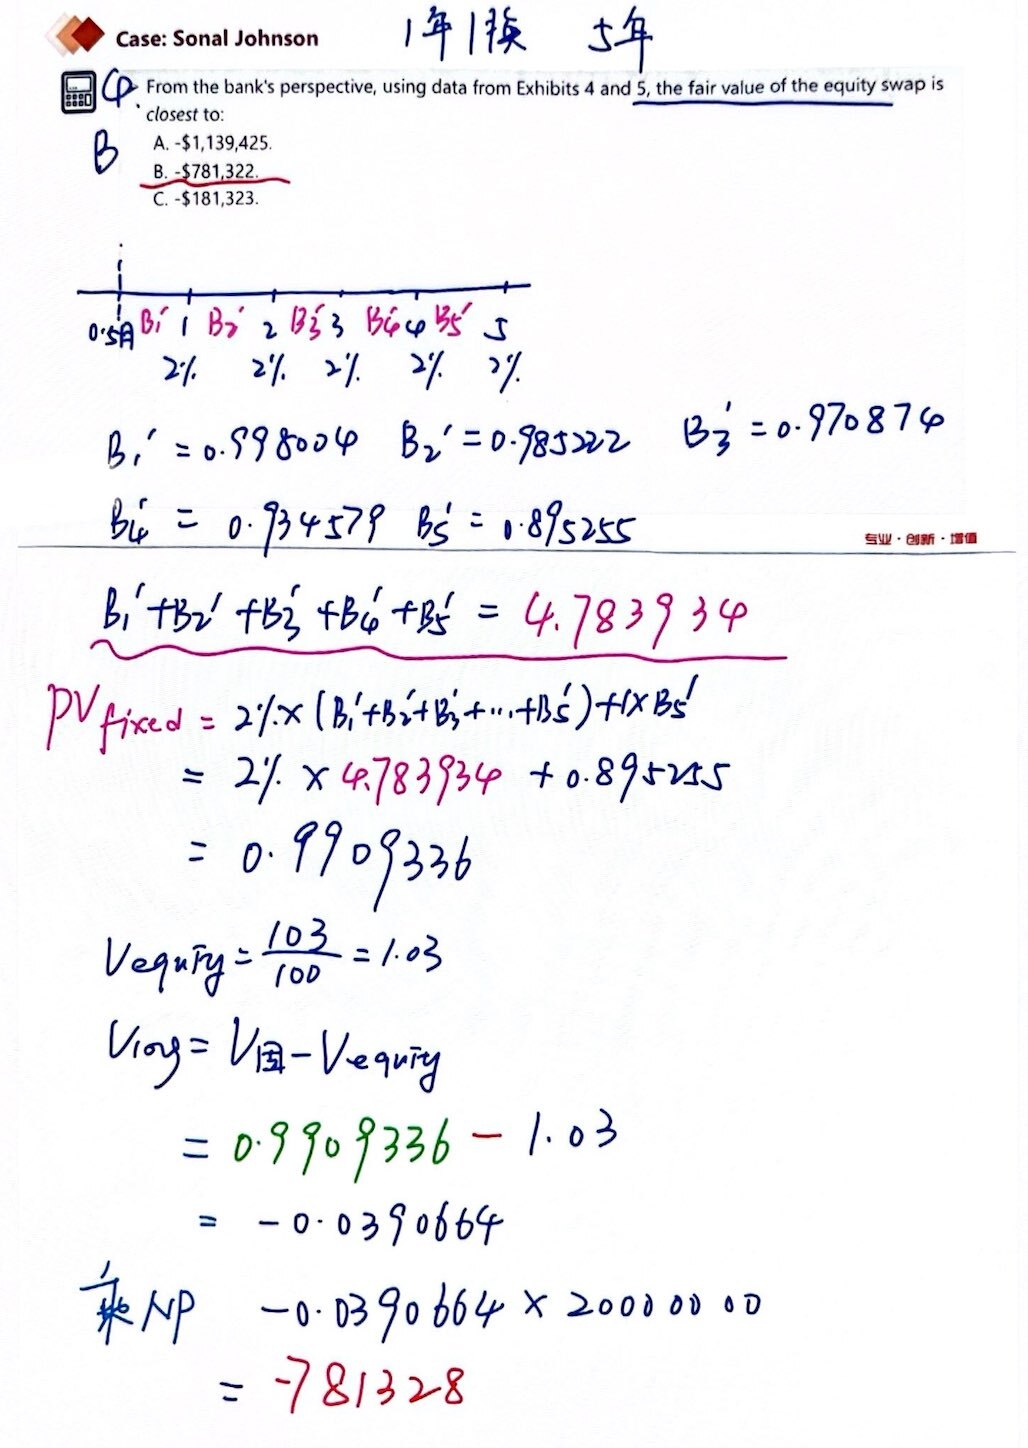 Case: Sonal Johnson 1年1换 5年
Q. From the bank's perspective, using data from Exhibits 4 and 5, the fair value of the equity swap is
closest to:
B A. -$1,139,425.
B. -$781,322.
C. -$181,323.
0.5月 B₁' 1 B₂' 2 B₃' 3 B₄' 4 B₅' 5
2% 2% 2% 2% 2%
B₁' = 0.998004 B₂' = 0.985222 B₃' = 0.970874
B₄' = 0.934579 B₅' = 0.895255
专业·创新·增值
B₁'+B₂'+B₃'+B₄'+B₅' = 4.783934
PV fixed = 2%×(B₁'+B₂'+B₃'+...+B₅')+1×B₅'
= 2% × 4.783934 + 0.895255
= 0.9909336
Vequity = 103/100 = 1.03
Vlong = V固 - Vequity
= 0.9909336 - 1.03
= -0.0390664
乘NP -0.0390664 × 20000000
= -781328